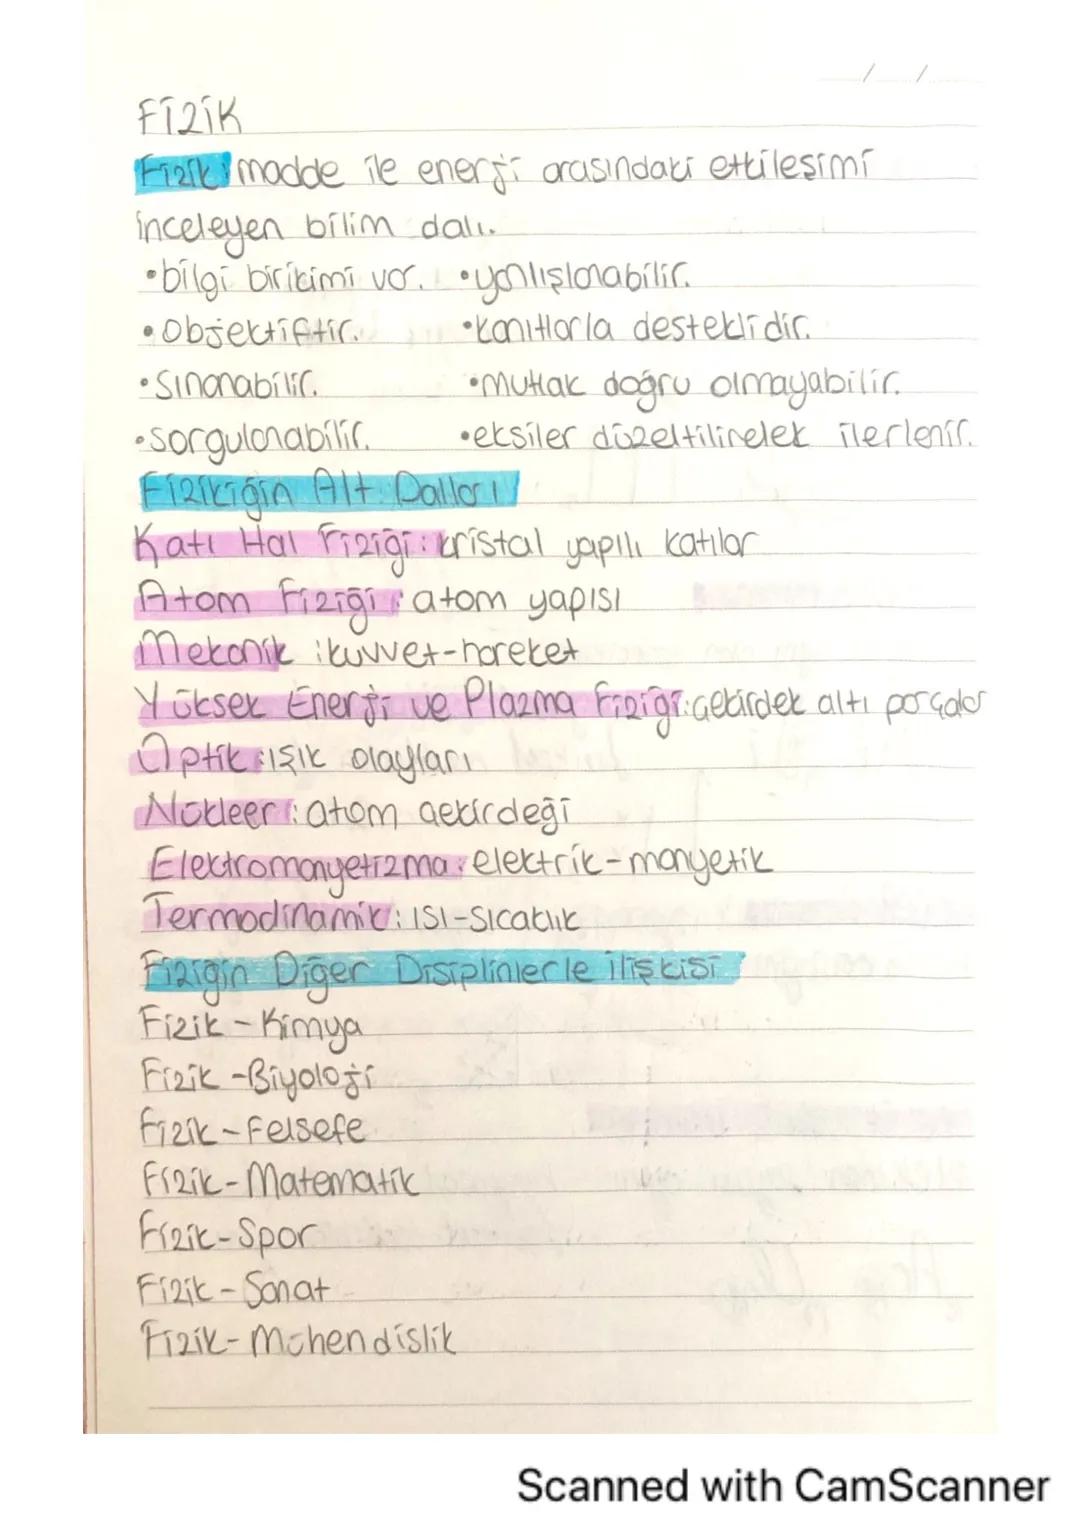 / /
FİZİK
Fizik: madde ile enerji arasındaki etkileşimi
inceleyen bilim dalı.
•bilgi birikimi var. •yanlışlanabilir.
•Objektiftir. •kanıtlarla desteklidir.
•Sınanabilir. •Mutlak doğru olmayabilir.
•Sorgulanabilir. •eksiler düzeltilirelek ilerlenir.
Fizikiğin Alt Dalları
Katı Hal Fiziği: kristal yapılı katılar
Atom Fiziği: atom yapısı
Mekanik: kuvvet-hareket
Yüksek Enerji ve Plazma Fiziği: Çekirdek altı parçalar
Optik: ışık olayları
Nükleer: atom çekirdeği
Elektromanyetizma: elektrik-manyetik
Termodinamik: ISI-Sıcaklık
Fiziğin Diğer Disiplinlerle ilişkisi
Fizik - Kimya
Fizik -Biyoloji
Fizik - Felsefe
Fizik - Matematik
Fizik-Spor
Fizik - Sanat
Fizik- Mühendislik
Scanned with CamScanner